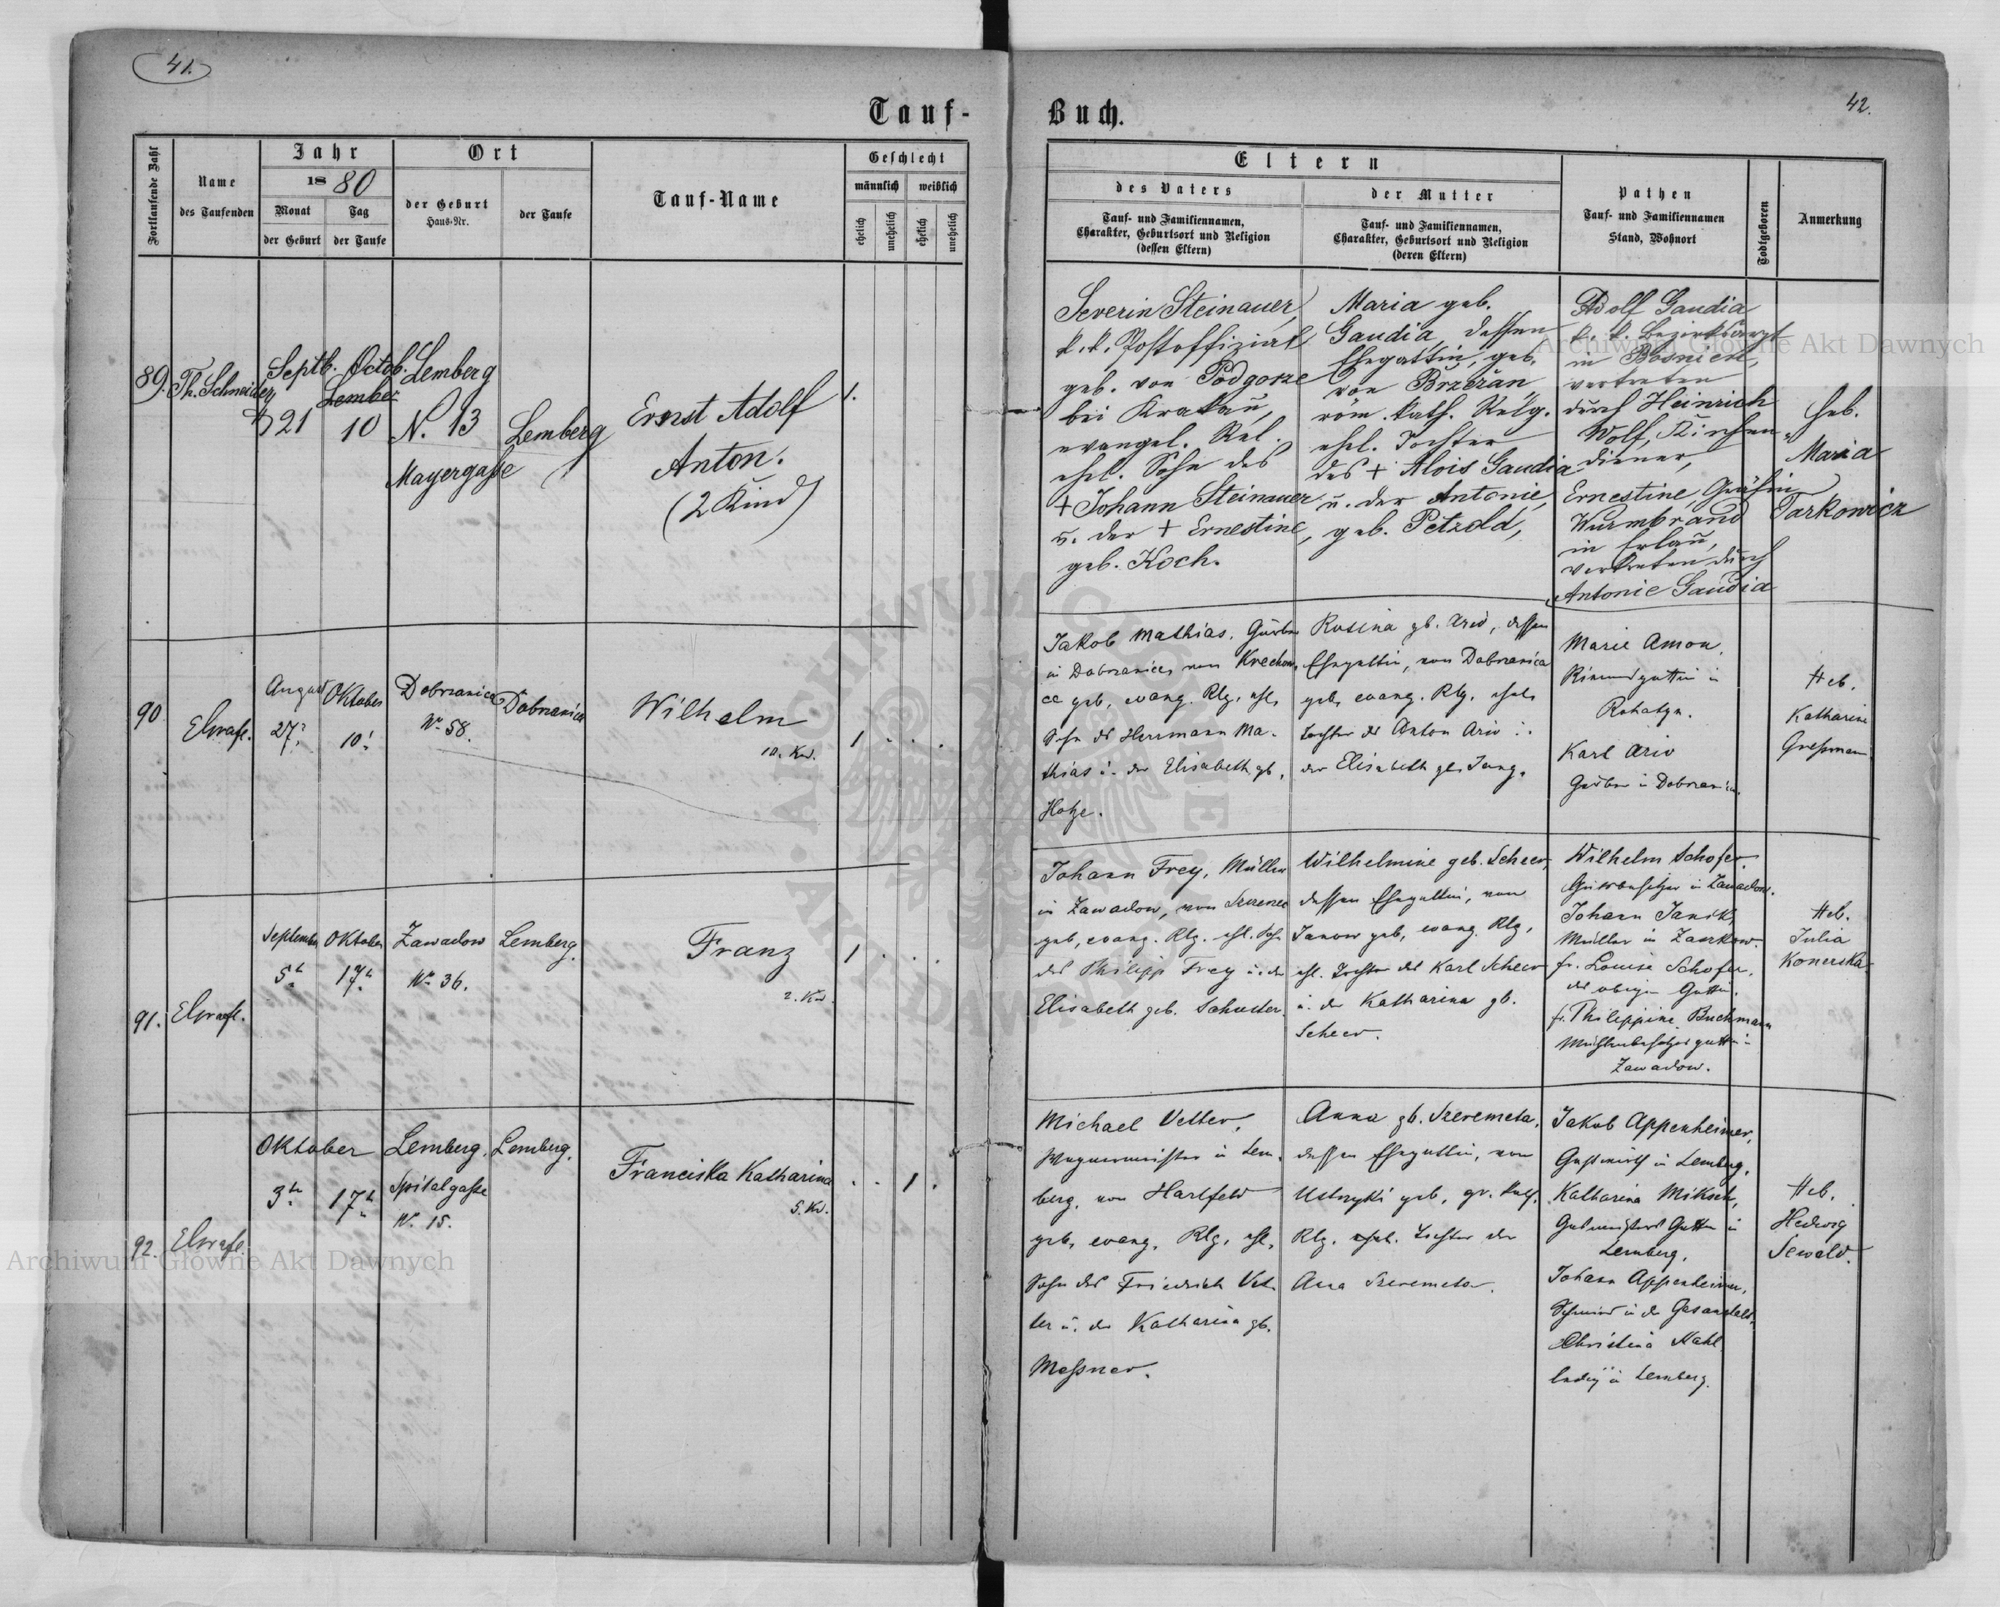 41.
Tauf-
Fortlaufende Zahl
Name
des Taufenden
Jahr
1880
Monat
Tag
der Geburt
der Taufe
Ort
der Geburt
Haus-Nr.
der Taufe
Tauf-Name
Geschlecht
männlich
weiblich
ehelich
unehelich
ehelich
unehelich
89.
Th. Schneider
Septb.
21
Octob.
Lember
10
Lemberg
N. 13
Mayergaße
Lemberg
Ernst Adolf
Anton.
(2 Kind)
1.
90
August
27.
Oktober
10.
Dobrzanica
Nr. 58.
Dobrzanica
Wilhelm
10. Kd.
1
91.
September
5t.
Oktober
17t.
Zawadow
Nr. 36.
Lemberg.
Franz
2. Kd.
1
92.
Oktober
3t.
17t.
Lemberg.
Spitalgaße
Nr. 15.
Lemberg.
Franciska Katharina
5. Kd.
1
42.
Buch.
Eltern
des Vaters
Tauf- und Familiennamen,
Charakter, Geburtsort und Religion
(dessen Eltern)
der Mutter
Tauf- und Familiennamen,
Charakter, Geburtsort und Religion
(deren Eltern)
Pathen
Tauf- und Familiennamen
Stand, Wohnort
Todtgeboren
Anmerkung
Severin Steinauer,
k. k. Postoffizial
geb. von Podgorze
bei Krakau,
evangel. Rel.
ehl. Sohn des
+ Johann Steinauer
u. der + Ernestine,
geb. Koch.
Maria geb.
Gaudia, dessen
Ehegattin, geb.
von Brzežan
röm. kath. Relg.
ehel. Tochter
des + Alois Gaudia
u. der Antonie,
geb. Petzold,
Adolf Gaudia
k. k. Bezirksarzt
in Bosnien,
vertreten
durch Heinrich
Wolf, Kirchen-
diener,
Ernestine, Gräfin
Wurmbrand
in Erlau,
vertreten durch
Antonie Gaudia
Heb.
Maria
Tarkowicz
Jakob Mathias, Gärber
in Dobrzanica, von
geb, evang. Rlg, ehl.
Sohn des Herrmann Ma-
thias u. der Elisabeth gb.
Hotze.
Rosina gb. , dessen
Ehegattin, von Dobrzanica
geb, evang. Rlg. ehel.
Tochter des Anton u.
der Elisabeth gb. Jung.
Marie Amon,
in
Rohatyn.
Karl
Gärber in Dobrzanica.
Heb.
Katharine
Greßmann
Johann Frey, Müller
in Zawadow, von
geb, evang. Rlg. ehl. Sohn
des Philipp Frey u. der
Elisabeth geb. Schuster.
Wilhelmine geb. Scheer,
dessen Ehegattin, von
Janow geb, evang. Rlg,
ehl. Tochter des Karl Scheer
u. der Katharina gb.
Scheer.
Wilhelm Schofer,
Gutsbesitzer in Zawadow.
Johann Janik,
Müller in
fr. Louise Schofer,
des obigen Gattin.
fr. Philippine Buchmann
Mühlenbesitzersgattin in
Zawadow.
Heb.
Julia
Konerska
Michael Vetter,
Wagnermeister in Lem-
berg, von Hartfeld
geb, evang. Rlg, ehl.
Sohn des Friedrich Vet-
ter u. der Katharina gb.
Meßner.
Anna gb. Szeremeta,
dessen Ehegattin, von
Ustrzyki geb, gr. kath.
Rlg. ehel. Tochter der
Ana Szeremeta.
Jakob Appenheimer,
Gastwirth in Lemberg,
Katharina Miksch,
Gattin in
Lemberg,
Johann Appenheimer,
Schmied in der Gasanstalt,
Christina Hahl
ledig in Lemberg.
Heb.
Hedwig
Sewald.
Archiwum Główne Akt Dawnych
Archiwum Główne Akt Dawnych